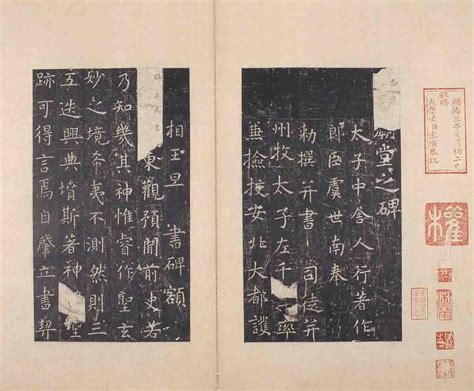 廟堂之碑
太子中舍人行著作
郎臣虞世南奉
勑撰并書 司徒并
州牧太子左千 率
兼撿挍安北大都護
相王旦 書碑額
東觀預聞前史若
乃知幾其神惟睿作聖玄
妙之境希夷不測然則三
五迭興典墳斯著神 聖
跡可得言焉自肇立書契